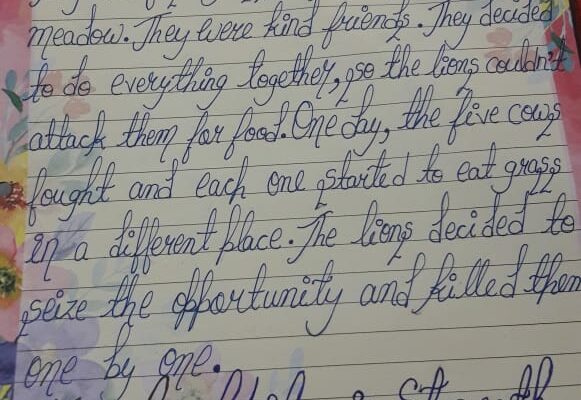 meadow. They were kind friends. They decided
to do everything together, so the lions couldn't
attack them for food. One day, the five cows
fought and each one started to eat grass
in a different place. The lions decided to
seize the opportunity and killed them
one by one.